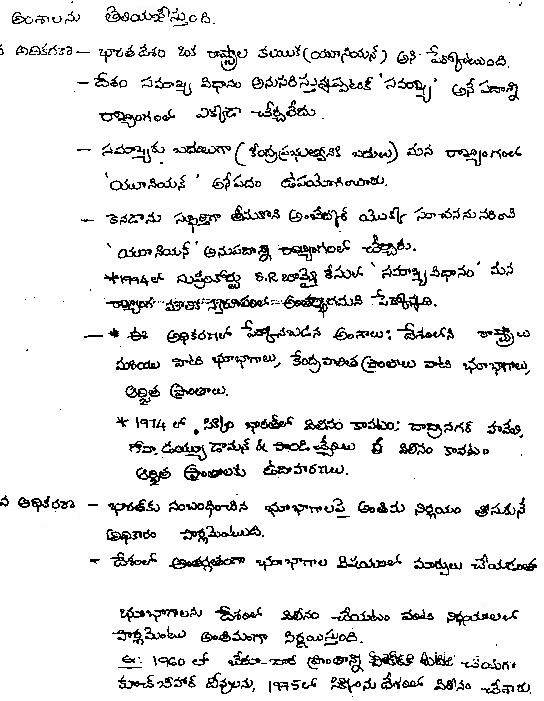 అంశాలను తెలియజేస్తుంది.
వ అధికరణ – భారతదేశం ఒక రాష్ట్రాల కలయిక (యూనియన్) అని పేర్కొంటుంది.
– దేశం సమాఖ్య విధానం అనుసరిస్తున్నప్పటికీ 'సమాఖ్య' అనే పదాన్ని
రాజ్యాంగంలో ఎక్కడా చేర్చలేదు.
– సమాఖ్యకు బదులుగా (కేంద్రప్రభుత్వానికి బదులు) మన రాజ్యాంగంలో
'యూనియన్' అనేపదం ఉపయోగించారు.
– కెనడాను తీసుకొని అంబేద్కర్ యొక్క సూచననుసరించి
'యూనియన్' అనుపదాన్ని రాజ్యాంగంలో చేర్చారు.
*1994లో సుప్రీంకోర్టు S.R బొమ్మై కేసులో 'సమాఖ్య విధానం' మన
రాజ్యాంగ మౌలిక స్వరూపంలో అంతర్భాగమని పేర్కొన్నది.
– * ఈ అధికరణలో పేర్కొనబడిన అంశాలు: దేశంలోని రాష్ట్రాలు
మరియు వాటి భూభాగాలు, కేంద్రపాలిత ప్రాంతాలు వాటి భూభాగాలు,
ఆర్జిత ప్రాంతాలు.
* 1974 లో సిక్కిం భారత్‌లో విలీనం కావటం: దాద్రానగర్ హవేలి,
గోవా, డయ్యు డామన్ & పాండిచ్చేరిలు విలీనం కావటం
ఆర్జిత ప్రాంతాలకు ఉదాహరణలు.
వ అధికరణ – భారత్‌కు సంబంధించిన భూభాగాలపై అంతిమ నిర్ణయం తీసుకునే
అధికారం పార్లమెంటుది.
– దేశంలో అంతర్గతంగా భూభాగాల విషయంలో మార్పులు చేయడంతో
భూభాగాలను దేశంలో విలీనం చేయటం వంటి నిర్ణయాలలో
పార్లమెంటు అంతిమంగా నిర్ణయిస్తుంది.
ఉ: 1960 లో ప్రాంతాన్ని చేయగా
కూచ్ బిహార్ దీవులను, 1975లో సిక్కింను దేశంలో విలీనం చేశారు.